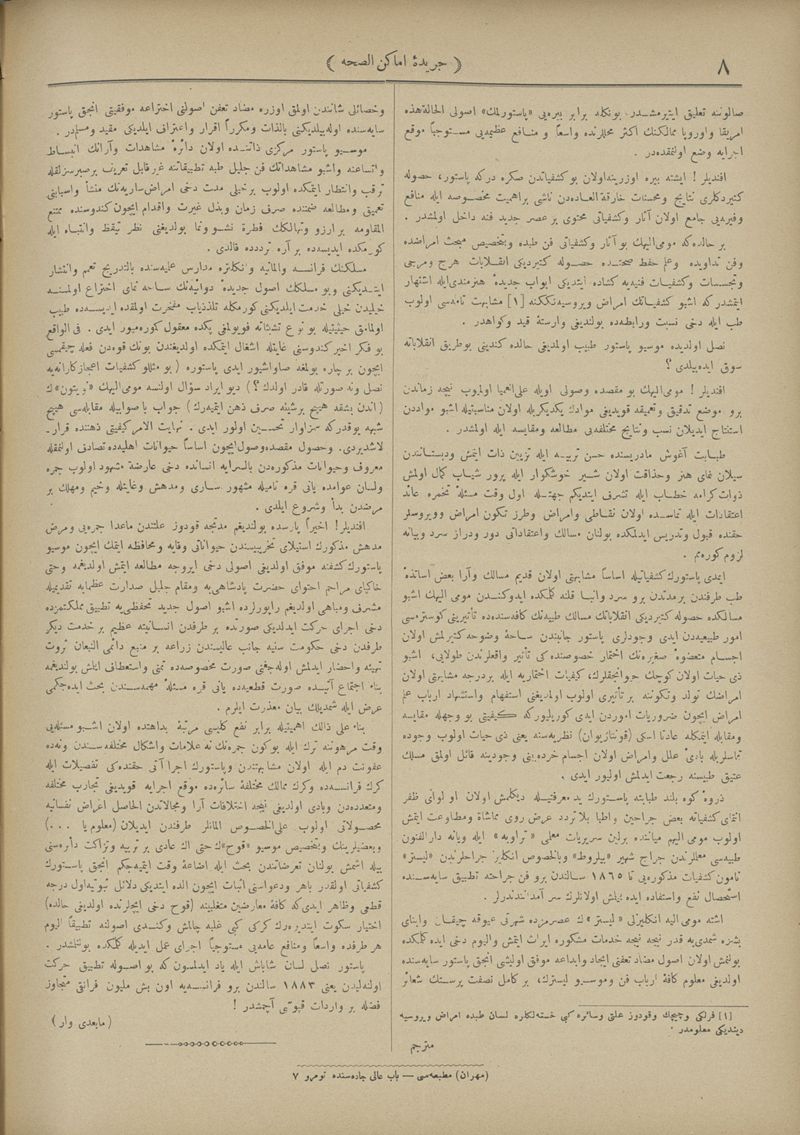 ٨
﴿ جريدهٔ اماكن الصحه ﴾
صالوننه تعليق ايتديرمشدر. بونكله برابر بيره‌يى «پاستورلمك» اصولى الحالة هذه
امريقا واوروپا ممالكنك اكثر محللرنده واسعاً و منافع عظيمه‌يى مستوجباً موقع
اجرايه وضع اولنمقده‌در .
افنديلر ! ايشته بيره اوزرينه اولان بو كشفياتدن صكره دركه پاستور، حصوله
كتيردكلرى نتايج ومحسنات خارقة‌العاده‌دن ناشى براهميت مخصوصه ايله منافع
وفيره‌يى جامع اولان آثار وكشفياتى محتوى برعصر جديد فنه داخل اولمشدر .
بر حالده‌كه مومى‌اليهك بو آثار وكشفياتى فن طبده وبتخصيص مبحث امراضده
وفن تداويده وعلم حفظ صحتده حصوله كتيرديكى انقلابات هرج ومرجى
وتجسسات وكشفيات فنيه‌يه كشاده ايتديكى ابواب جديدهٔ هنرمندى‌ايله اشتهار
ايتمشدركه اشبو كشفياتك امراض ويروسيه‌نك‌كنه [١] مشابهت تامه‌سى اولوب
طب ايله دخى نسبت ورابطه‌ده بولنديغنى وارسته قيد وكواهدر .
نصل اولديده موسيو پاستور طبيب اولمديغى حالده كندينى بوطريق انقلاباته
سوق ايده‌بيلدى ؟
افنديلر ! مومى‌اليهك بو مقصده وصولى اويله على‌العميا اولميوب نيجه زماندن
برو موضع تدقيق وتعميقه قويديغى موادك يكديكريله اولان مناسبتيله اشبو مواددن
استنتاج ايديلان نسب ونتايج مختلفه‌يى مطالعه ومقايسه ايله اولمشدر .
طبابت آغوش مادريسنده حسن تربيه ايله تزيين ذات ايتمش ودبستانندن
سيلان نماى هنر وحذاقت اولان شير خوشكوار ايله پرور شياب كمال اولمش
ذوات كرامه خطاب ايله تشرف ايتديكم جهتله اول وقت مسئلهٔ تخمره عائد
اعتقادات ايله تماسده اولان نقاطى وامراض وطرز تكون امراض وويروسلر
حقنده قبول وتدريس ايدلمكده بولنان مسالك واعتقاداتى دور ودراز سرد وبيانه
لزوم كوره‌مم .
ايمدى پاستورك كشفياتيله اساساً مشابهتى اولان قديم مسالك وآرا بعض اساتذهٔ
طب طرفندن برمدتدن برو سرد واتيا قلنه كلمكده ايدوكندن مومى اليهك اشبو
مسالكده حصوله كتيرديكى انقلاباتك مسالك طبيه‌نك كافه‌سنده‌ده تأثيرينى كوسترمسى
امور طبيعيه‌دن ايدى وجودلرى پاستور جانبندن ساحهٔ وضوحه كتيرلمش اولان
اجسام متعضوهٔ صغيره‌نك اختمار خصوصنده‌كى تأثير واقعلرندن طولايى، اشبو
ذى حيات اولان كوچك حيوانجقلرك، كيفيات اختماريه ايله بردرجه مشابهتى اولان
امراضك تولد وتكوننه برتأثيرى اولوب اولمديغنى استفهام واستشهاد ارباب علم
امراض ايچون ضروريات اموردن ايدى كوريلوركه كيفيتى بو وجهله مقايسه
ومقابله ايتمكله عادتا اسكى (قونتازيوان) نظريه‌سنه يعنى ذى حيات اولوب وجوده
تماسلريله بادئ علل وامراض اولان اجسام خرده‌بينى وجودينه قائل اولمق مسلك
عتيق طبيسنه رجعت ايدلمش اوليور ايدى .
ذروهٔ كوه بلند طبابته پاستورك يد معرفتيله ديكلمش اولان او لواى ظفر
انتماى كشفياته بعض جراحين واطبا بلا تردد عرض روى مماشاة ومطاوعت ايتمش
اولوب مومى اليهم مياننده برلين سريريات معلمى «تراوبه» ايله ويانه دارالفنون
طبيه‌سى معلملرندن جراح شهير «بيلروط» وبالخصوص انكليز جراحلرندن «ليستر»
نامون كشفيات مذكوره‌يى تا ١٨٦٥ سالندن برو فن جراحته تطبيق سايه‌سنده
استحصال نفع واستفاده ايده بيلمش اولانلرك سر آمدانندندرلر .
اشته مومى اليه انكليزلى «ليستر»ك عصرمزده شهرتى عيوقه چيقان وابناى
بشره شمدى‌يه قدر نيجه نيجه خدمات مشكوره ايراث ايتمش واليوم دخى ايده كلمكده
بولنمش اولان اصول مضاد تعفنى ايجاد وابداعه موفق اولمسى انجق پاستور سايه‌سنده
اولديغى معلوم كافهٔ ارباب فن وموسيو ليسترك، بر كامل نصفت پرستك شعائر
[١] فرنكى وچيچك وقودوز علتى وسائره كبى خسته‌لكلره لسان طبده امراض ويروسيه
دينديكى معلومدر .
مترجم
وخصائلى شانندن اولمق اوزره مضاد تعفن اصولنى اختراعه موفقيتى انجق پاستور
سايه‌سنده اوله‌بيلديكنى بالذات ومكرراً اقرار واعتراف ايلديكى مقيد ومسلمدر .
موسيو پاستور مركزى ذاتنده اولان دائرهٔ مشاهدات وآرانك انبساط
واتساعنه واشبو مشاهداتك فن جليل طبه تطبيقاتنه غيرقابل تعريف برصبرسزلقله
ترقب وانتظار ايتمكده اولوب برخيلى مدت دخى امراض ساريه‌نك منشأ واسبابنى
تعميق ومطالعه ضمننده صرف زمان وبذل غيرت واقدام ايچون كندوسنده ممتنع
المقاومه برآرزو وتهالكك فطرة نشو ونما بولديغنى نظر تيقظ وانتباه ايله
كورمكده ايديسه‌ده بر آره ترددده قالدى .
مسلكنك فرانسه والمانيه وانكلتره مدارس عليه‌سنده بالتدريج تعمم وانتشار
ايتديكنى وبو مسلك اصول جديدهٔ دوائيه‌نك ساحه نماى اختراع اولمسنه
خيليدن خيلى خدمت ايلديكنى كورمكله تلذذياب مفخرت اولمقده ايديسه‌ده طبيب
اولمامق حيثيتيله بو نوع تشبثاته قويولمنى پكده معقول كورميور ايدى . فى‌الواقع
بو فكر اخير كندوسنى غايتله اشغال ايتمكده اولديغندن بونك قوه‌دن فعله چيقمسى
ايچون بر چاره بولمغه صاواشيور ايدى پاستوره (بو مثللو كشفيات اعجازكارانه‌يه
نصل ونه صورتله قادر اولدك ؟) ديو ايراد سؤال اولنسه مومى اليهك «نويتون»ك
(اندن بشقه هيچ برشيئه صرف ذهن ايتميه‌رك) جواب باصوابيله مقابله‌سى هيچ
شبهه يوقدركه سزاوار تحسين اولور ايدى . نهايت الامر كيفيتى ذهننده قرار-
لاشديردى. وحصول مقصده وصول ايچون اساساً حيوانات اهليه‌ده تصادف اولنمقله
معروف وحيوانات مذكوره‌دن بالسرايه انسانده دخى عارضهٔ مشهود اولوب جمره
ولسان عوامده يانى قره ناميله مشهور سارى ومدهش وغايتله وخيم ومهلك بر
مرضدن بدأ وشروع ايلدى .
افنديلر ! اخيراً پارسده بولنديغم مدتجه قودوز علتندن ماعدا جمره‌يى ومرض
مدهش مذكورك استيلاى تخريبيسندن حيواناتى وقايه ومحافظه ايتمك ايچون موسيو
پاستورك كشفنه موفق اولديغى اصولى دخى ايروجه مطالعه ايتمش اولديغمه وحتى
خاكپاى مراحم احتواى حضرت پادشاهى‌يه ومقام جليل صدارت عظمايه تقديميله
مشرف ومباهى اولديغم راپورلرده اشبو اصول جديد تحفظى‌يه تطبيق مملكتمزده
دخى اجراى حركت ايدلديكى صورتده بر طرفدن انسانيته عظيم برخدمت ديكر
طرفدن دخى حكومت سنيه جانب عاليسندن زراعه بر منبع دائمى النبعان ثروت
تهيئه واحضار ايدلمش اوله‌جغنى صورت مخصوصه‌ده تمنى واستعطاف ايتمش بولنديغمه
بناءً اجتماع آتيده صورت قطعيه‌ده يانى قره مسئلهٔ مهمه‌سندن بحث ايده‌جكمى
عرض ايله شمديلك بيان معذرت ايلرم .
بناءً على ذالك اهميتيله برابر نفع كليسى مرتبهٔ بداهتده اولان اشبو مسئله‌يى
وقت مرهوننه ترك ايله بوكون جمره‌نك نه علامات واشكال مختلفه‌سندن ونه‌ده
عفونت دم ايله اولان مشابهتندن وپاستورك اجراآتى حقنده‌كى تفصيلات ايله
كرك فرانسه‌ده وكرك ممالك مختلفهٔ سائره‌ده موقع اجرايه قويديغى تجارب مختلفه
ومتعدده‌دن وبادى اولديغى نيجه اختلافات آرا ومجالاتدن الحاصل اغراض نفسانيه
محصولاتى اولوب على‌الخصوص المانلر طرفندن ايديلان (معلوم يا . . .)
وبعضيلرينك وبتخصيص موسيو «قوخ»ك حتى اك عادى بر تربيه ونزاكت دائره‌سنى
بيله اشمش بولنان تعرضاتندن بحث ايله اضاعهٔ وقت ايتميه‌جكم انجق پاستورك
كشفياتى اولقدر باهر ودعواسنى اثبات ايچون الده ايتديكى دلائل ثبوتيه اول درجه
قطعى وظاهر ايدى‌كه كافهٔ معارضين متغلبينه (قوخ دخى ايچلرنده اولديغى حالده)
اختيار سكوت ايتديره‌رك كركى كبى غلبه چالمش وكندى اصولنه تطبيقاً اليوم
هر طرفده واسعاً ومنافع عامه‌يى مستوجباً اجراى عمل ايديله كلمكده بولنمشدر .
پاستور نصل لسان شاباش ايله ياد ايدلمسون‌كه بو اصوله تطبيق حركت
اولنه‌ليدن يعنى ١٨٨٣ سالندن برو فرانسه‌يه اون بش مليون فرانق متجاوز
فضله بر واردات قپوسى آچمشدر !
(مابعدى وار)
(مهران) مطبعه‌سى — باب عالى جاده‌سنده نومرو ٧